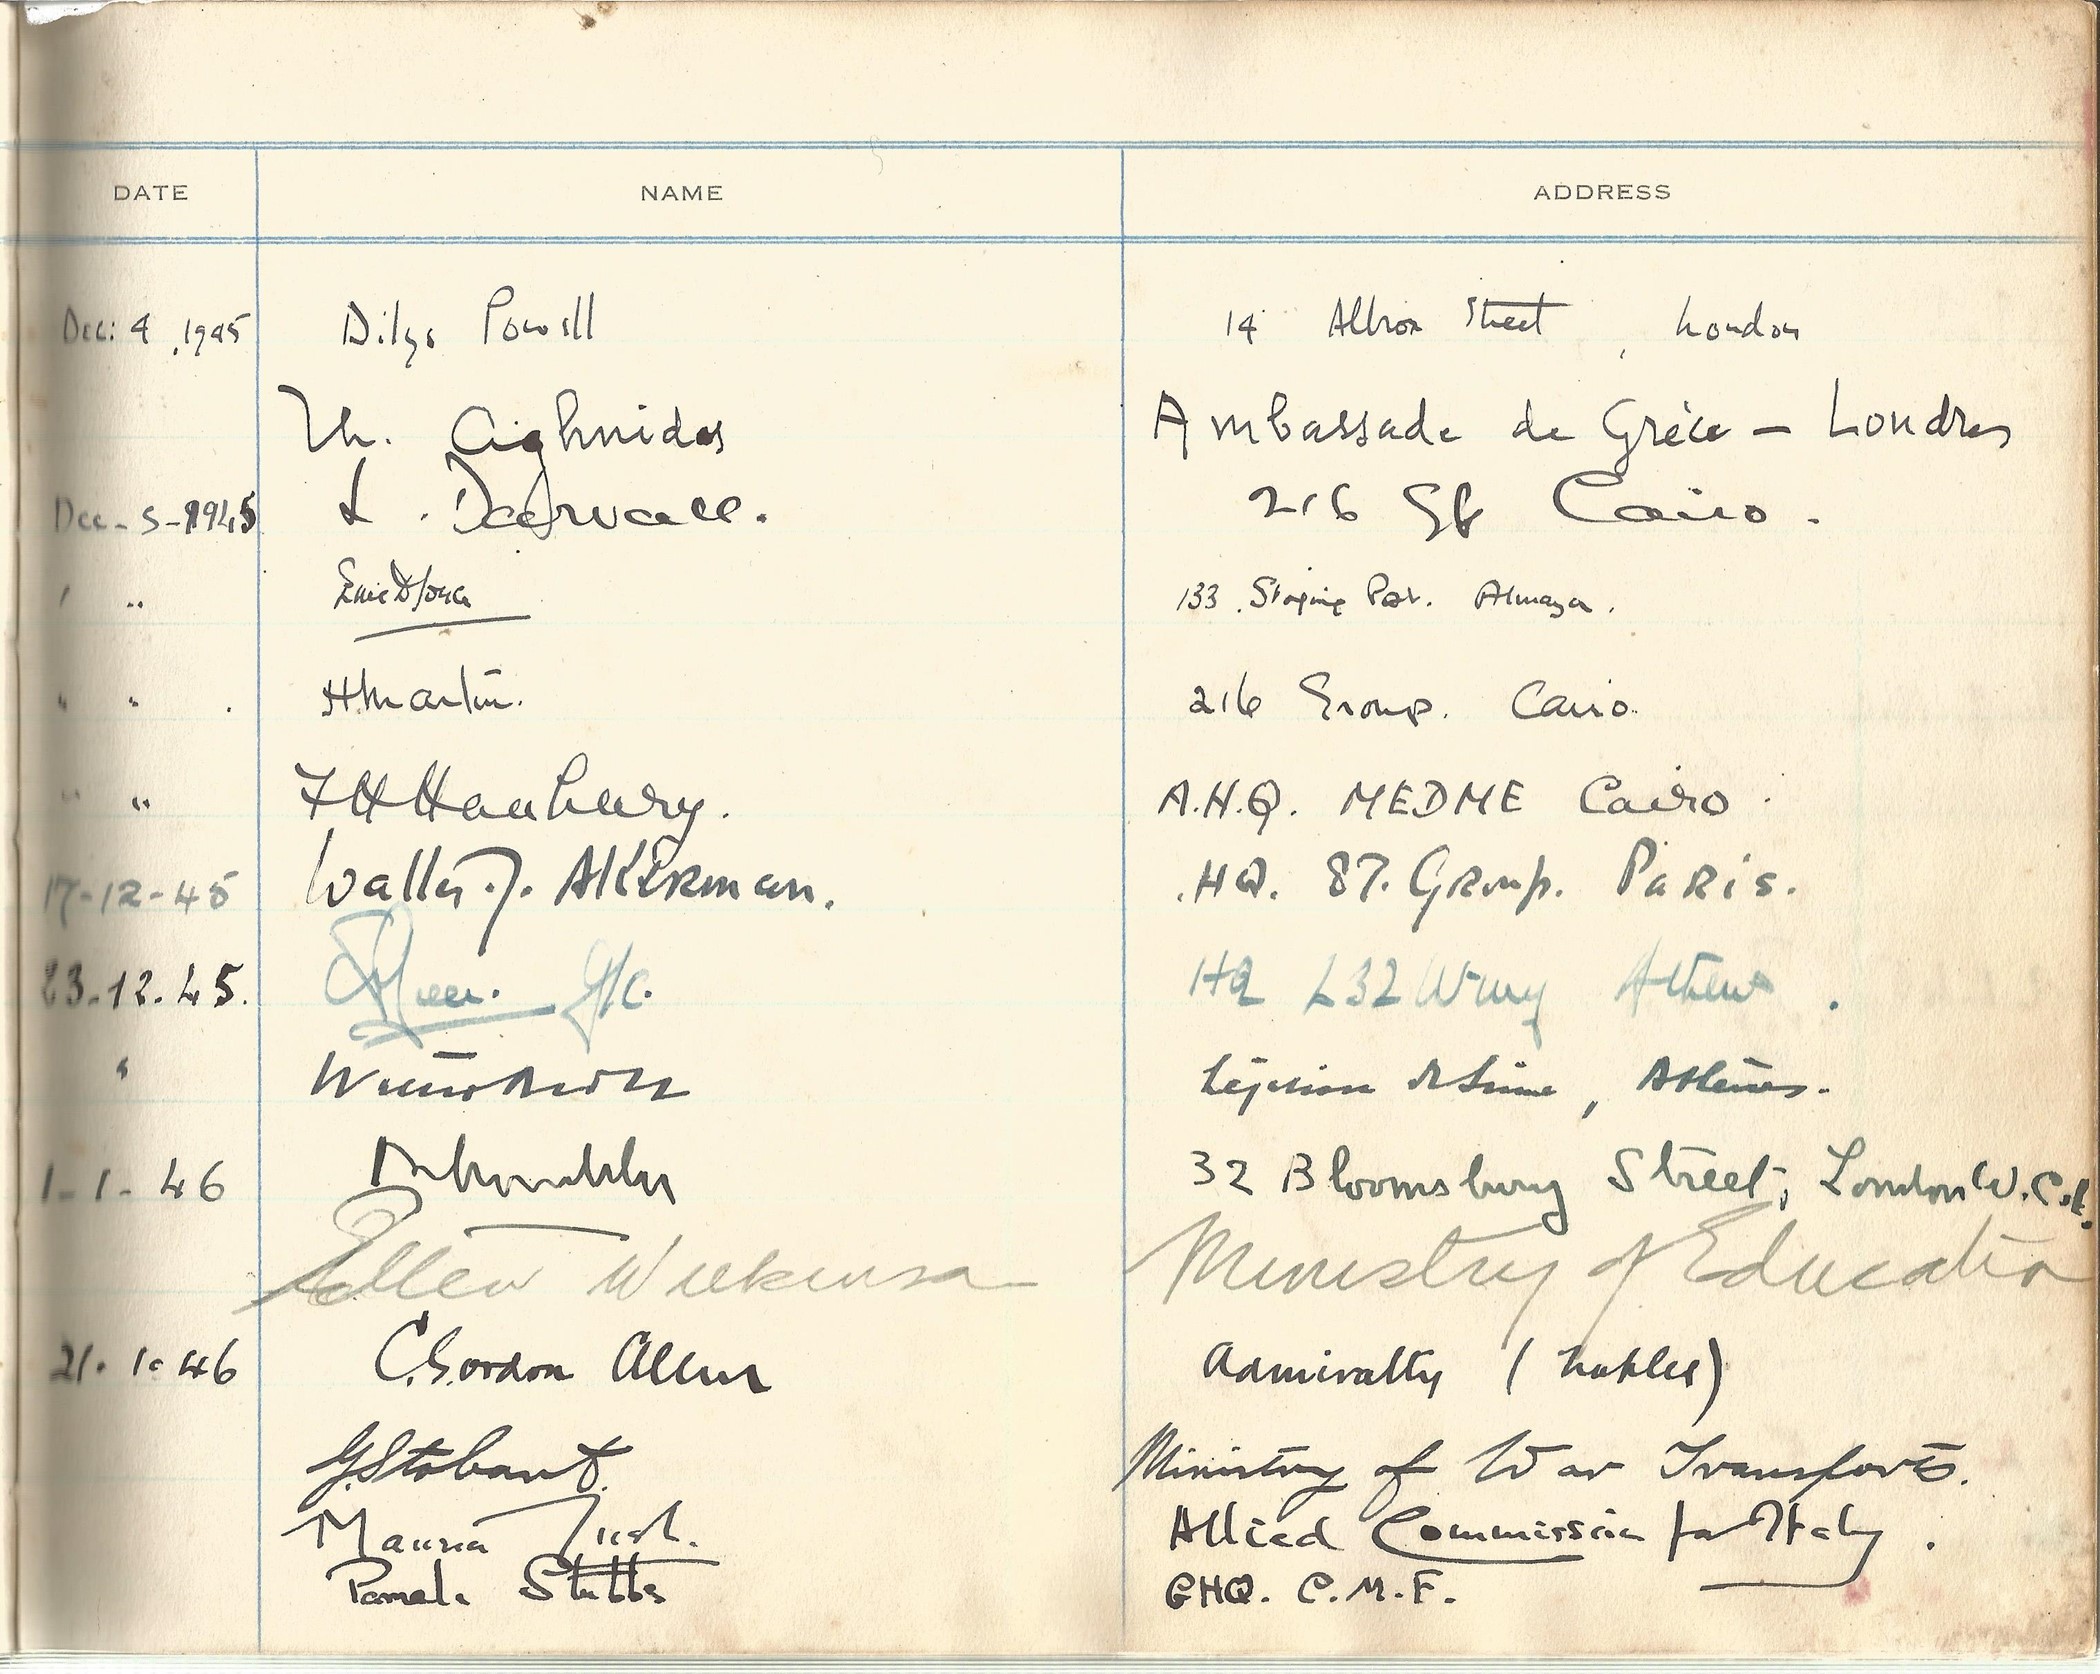 DATE NAME ADDRESS
Dec: 4, 1945 Dilys Powell 14 Albion Street, London
Th. Aghnides Ambassade de Grèce – Londres
Dec - 5 - 1945 L. Darvall. 216 Gp Cairo.
" " 133 Staging Post. Almaza.
" " . H Martin. 216 Group. Cairo.
" " F H Hanbury. A.H.Q. MEDME Cairo.
17-12-45 Walter J. Akerman. HQ. 87. Group. Paris.
23.12.45. G/C. HQ 232 Wing Athens.
" Légation de Suisse, Athènes.
1-1-46 32 Bloomsbury Street, London W.C.1.
Ellen Wilkinson Ministry of Education
21.1.46 C. Gordon Allen Admiralty (Naples)
G. Stobart. Ministry of War Transport.
Allied Commission for Italy.
Pamela Stubbs GHQ. C.M.F.